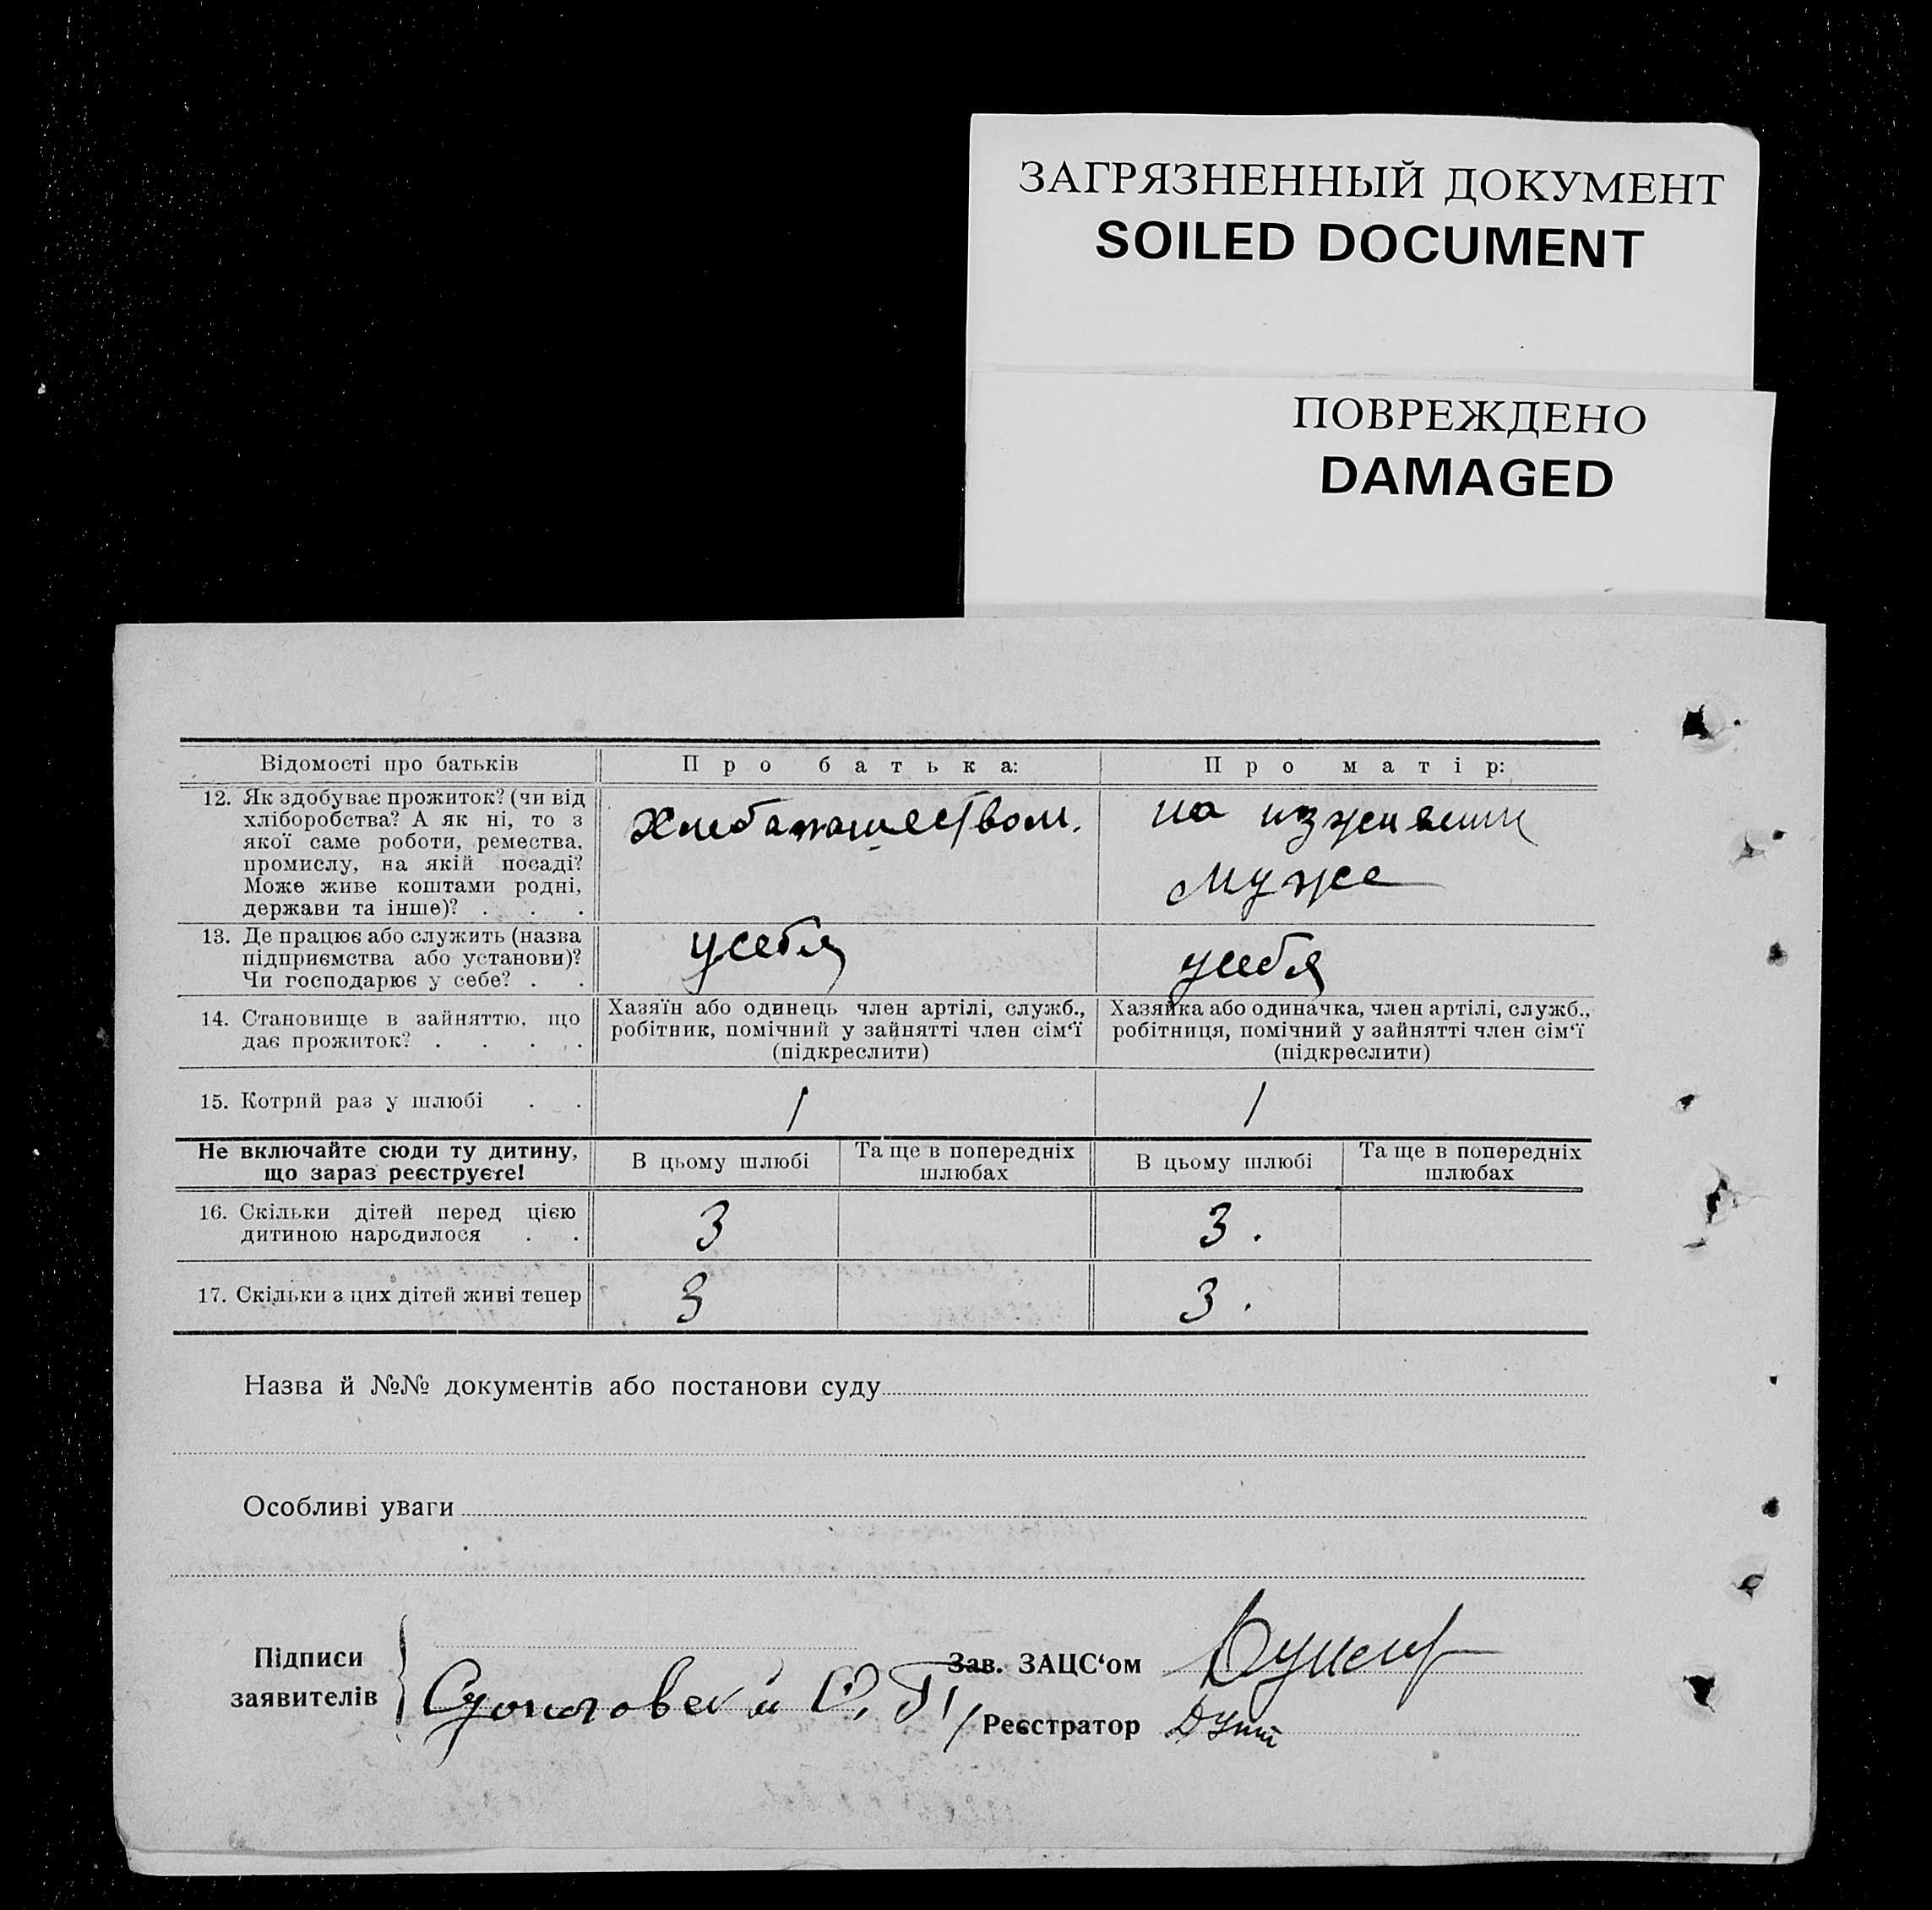 ЗАГРЯЗНЕННЫЙ ДОКУМЕНТ
SOILED DOCUMENT
ПОВРЕЖДЕНО
DAMAGED
Відомості про батьків
Про батька:
Про матір:
12. Як здобуває прожиток? (чи від
хліборобства? А як ні, то з
якої саме роботи, ремества,
промислу, на якій посаді?
Може живе коштами родні,
держави та інше)? . . .
Хлебапашеством.
на иждивении
муже
13. Де працює або служить (назва
підприємства або установи)?
Чи господарює у себе? . .
у себя
у себя
14. Становище в зайняттю, що
дає прожиток? . . . .
Хазяїн або одинець член артілі, служб.,
робітник, помічний у зайнятті член сім‘ї
(підкреслити)
Хазяйка або одиначка, член артілі, служб.,
робітниця, помічний у зайнятті член сім‘ї
(підкреслити)
15. Котрий раз у шлюбі . .
1
1
Не включайте сюди ту дитину,
що зараз реєструєте!
В цьому шлюбі
Та ще в попередніх
шлюбах
В цьому шлюбі
Та ще в попередніх
шлюбах
16. Скільки дітей перед цією
дитиною народилося . .
3
3.
17. Скільки з цих дітей живі тепер
3
3.
Назва й №№ документів або постанови суду
Особливі уваги
Підписи
заявителів
Зав. ЗАЦС‘ом
Реєстратор